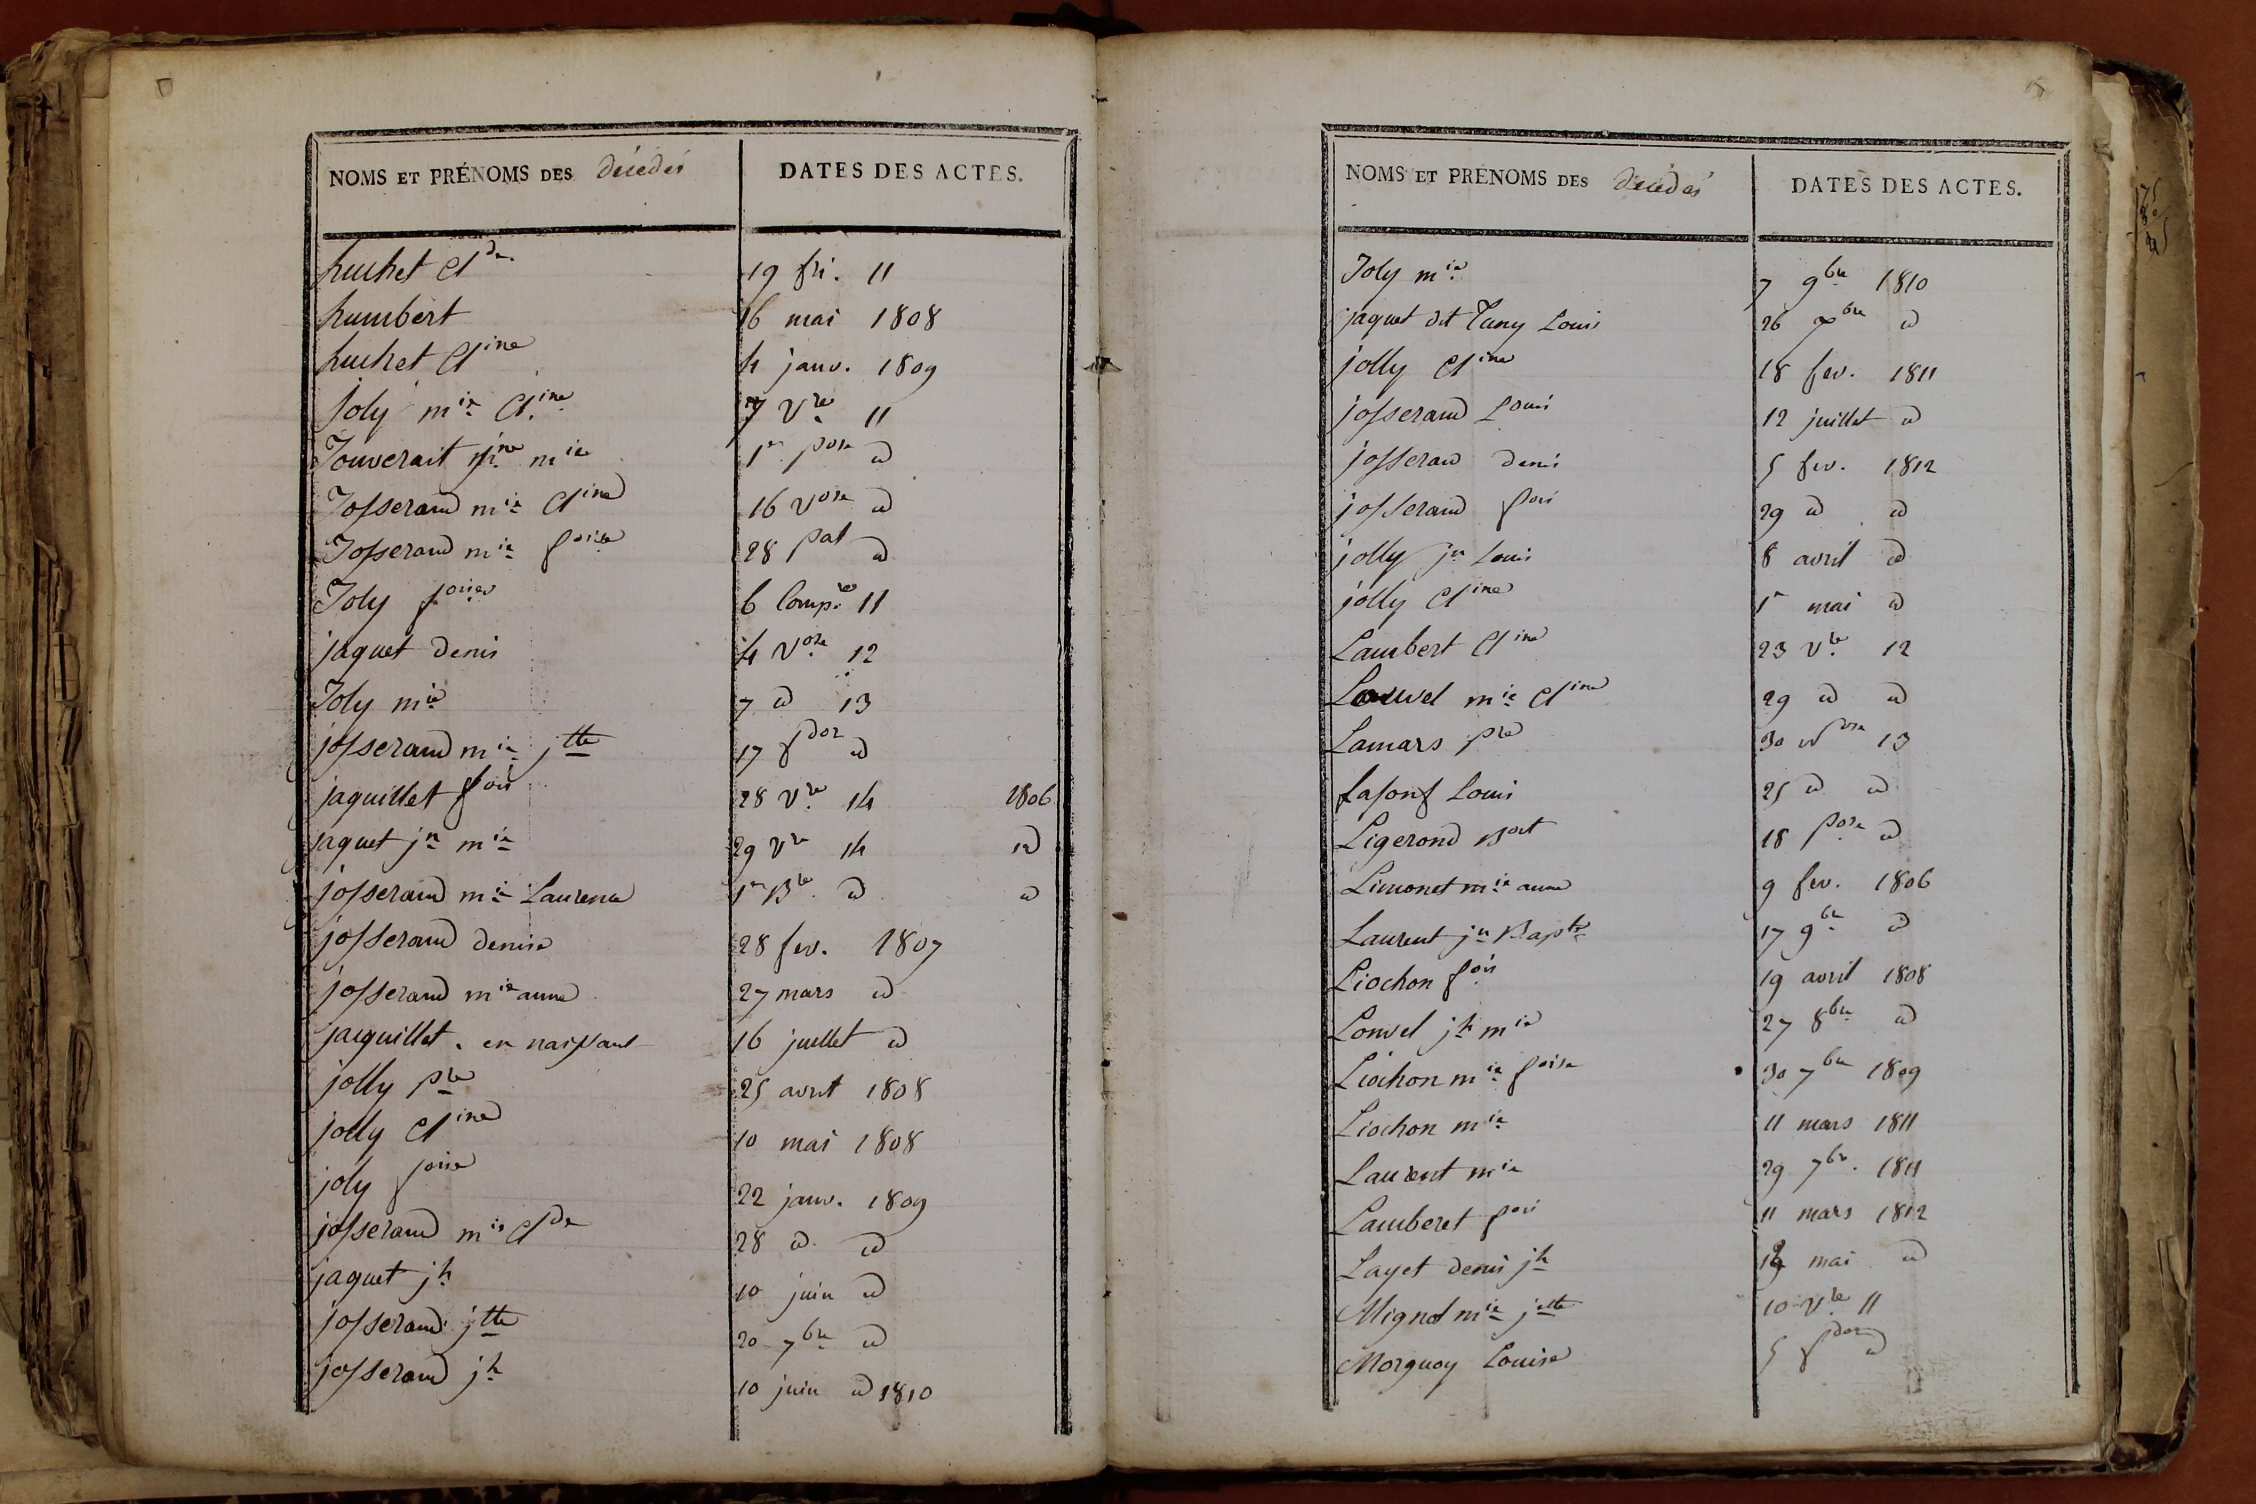 NOMS ET PRÉNOMS DES décédés DATES DES ACTES.
huchet Clde 19 fri. 11
humbert 16 mai 1808
huchet Cline 4 janv. 1809
Joly mie Cline 7 Vre 11
Jouverait jne mie 1er pose id
Josserand mie Cline 16 Vose id
Josserand mie foise 28 pal id
Joly foise 6 Compre 11
jaquet denis 4 Vose 12
Joly mie 7 id 13
josserand mie jtte 17 fdor id
jaquillet fois 28 Vre 14 1806
jaquet jn mie 29 Vre 14 id
josserand mie Laurence 1er Bre id id
josserand denise 28 fev. 1807
josserand mie anne 27 mars id
jacquillet. en naissant 16 juillet id
jolly pre 25 avril 1808
jolly Cline 10 mai 1808
joly foise 22 janv. 1809
josserand mie Clde 28 id id
jaquet jh 10 juin id
josserand jtte 20 7bre id
josserand jh 10 juin id 1810
NOMS ET PRÉNOMS DES décédés DATES DES ACTES.
Joly mie 7 9bre 1810
jaquet dit Louis 26 bre id
jolly Cline 18 fev. 1811
josserand Louis 12 juillet id
josserand denis 5 fev. 1812
josserand fois 29 id id
jolly jn Louis 8 avril id
jolly Cline 1er mai id
Lambert Cline 23 Vre 12
Louvel mie Cline 29 id id
Lamars pre 30 13
Lafont Louis 25 id id
Ligerond 18 pose id
Limonet mie anne 9 fev. 1806
Laurent jn Bapte 17 9bre id
Liochon fois 19 avril 1808
Louvel jh mie 27 8bre id
Liochon mie foise 30 7bre 1809
Liochon mie 11 mars 1811
Laurent mie 29 7bre. 1811
Lamberet fois 11 mars 1812
Layet denis jh mai id
Mignot mie jette 10 Vre 11
Morguoy Louise 5 fdor id